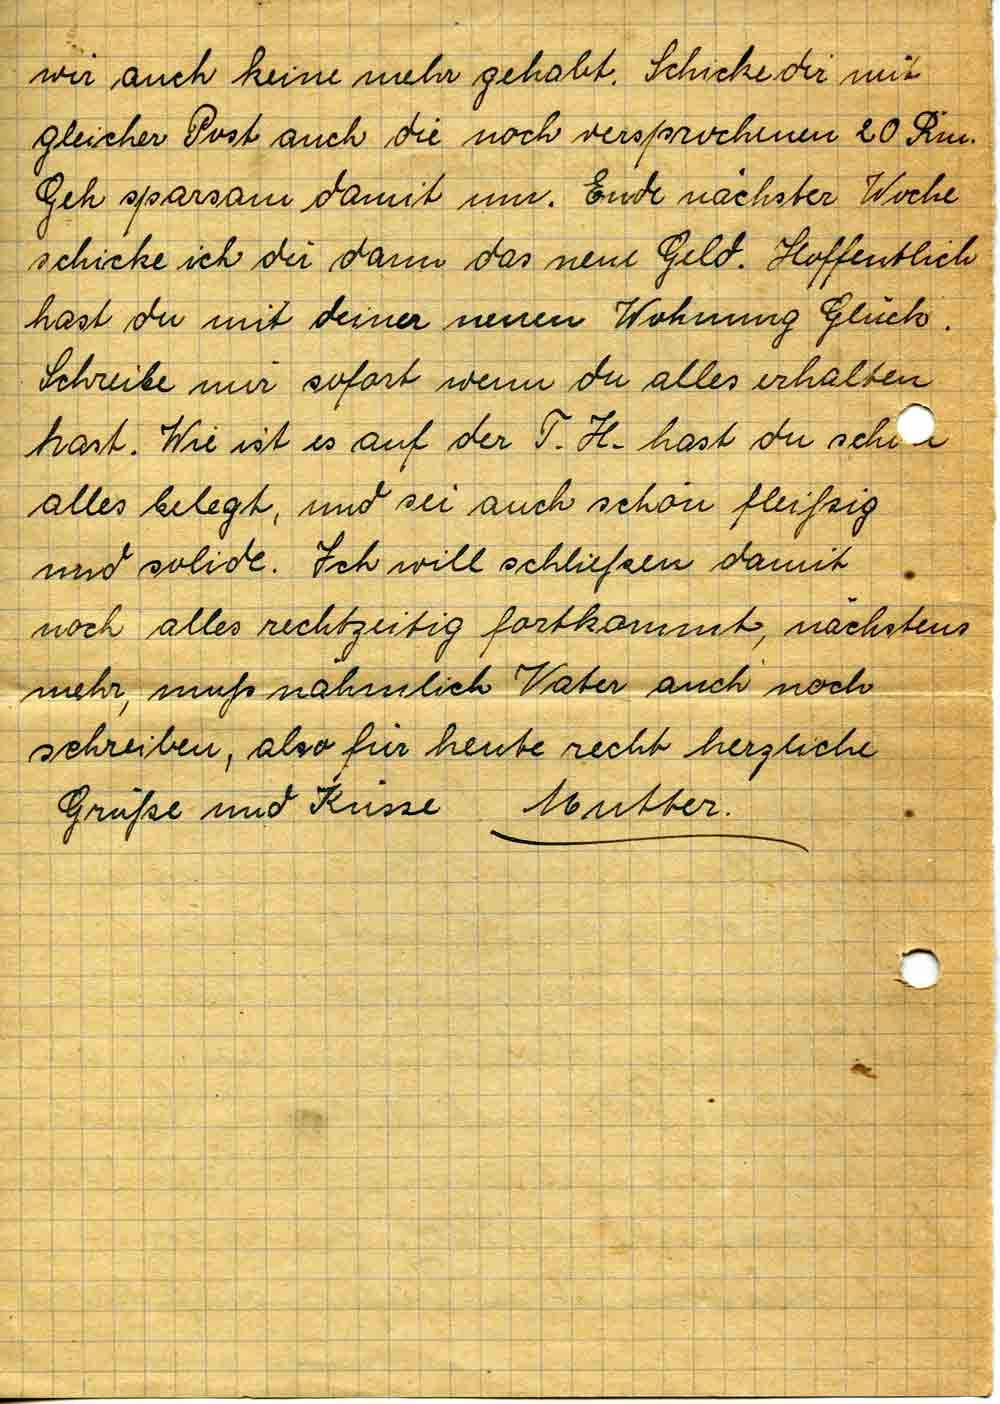 wir auch keine mehr gehabt. Schicke dir mit
gleicher Post auch die noch versprochenen 20 Rm.
Geh sparsam damit um. Ende nächster Woche
schicke ich dir dann das neue Geld. Hoffentlich
hast du mit deiner neuen Wohnung Glück.
Schreibe mir sofort wenn du alles erhalten
hast. Wie ist es auf der T. H. hast du schon
alles belegt, und sei auch schön fleißig
und solide. Ich will schließen damit
noch alles rechtzeitig fortkommt, nächstens
mehr, muß nähmlich Vater auch noch
schreiben, also für heute recht herzliche
Grüße und Küsse Mutter.